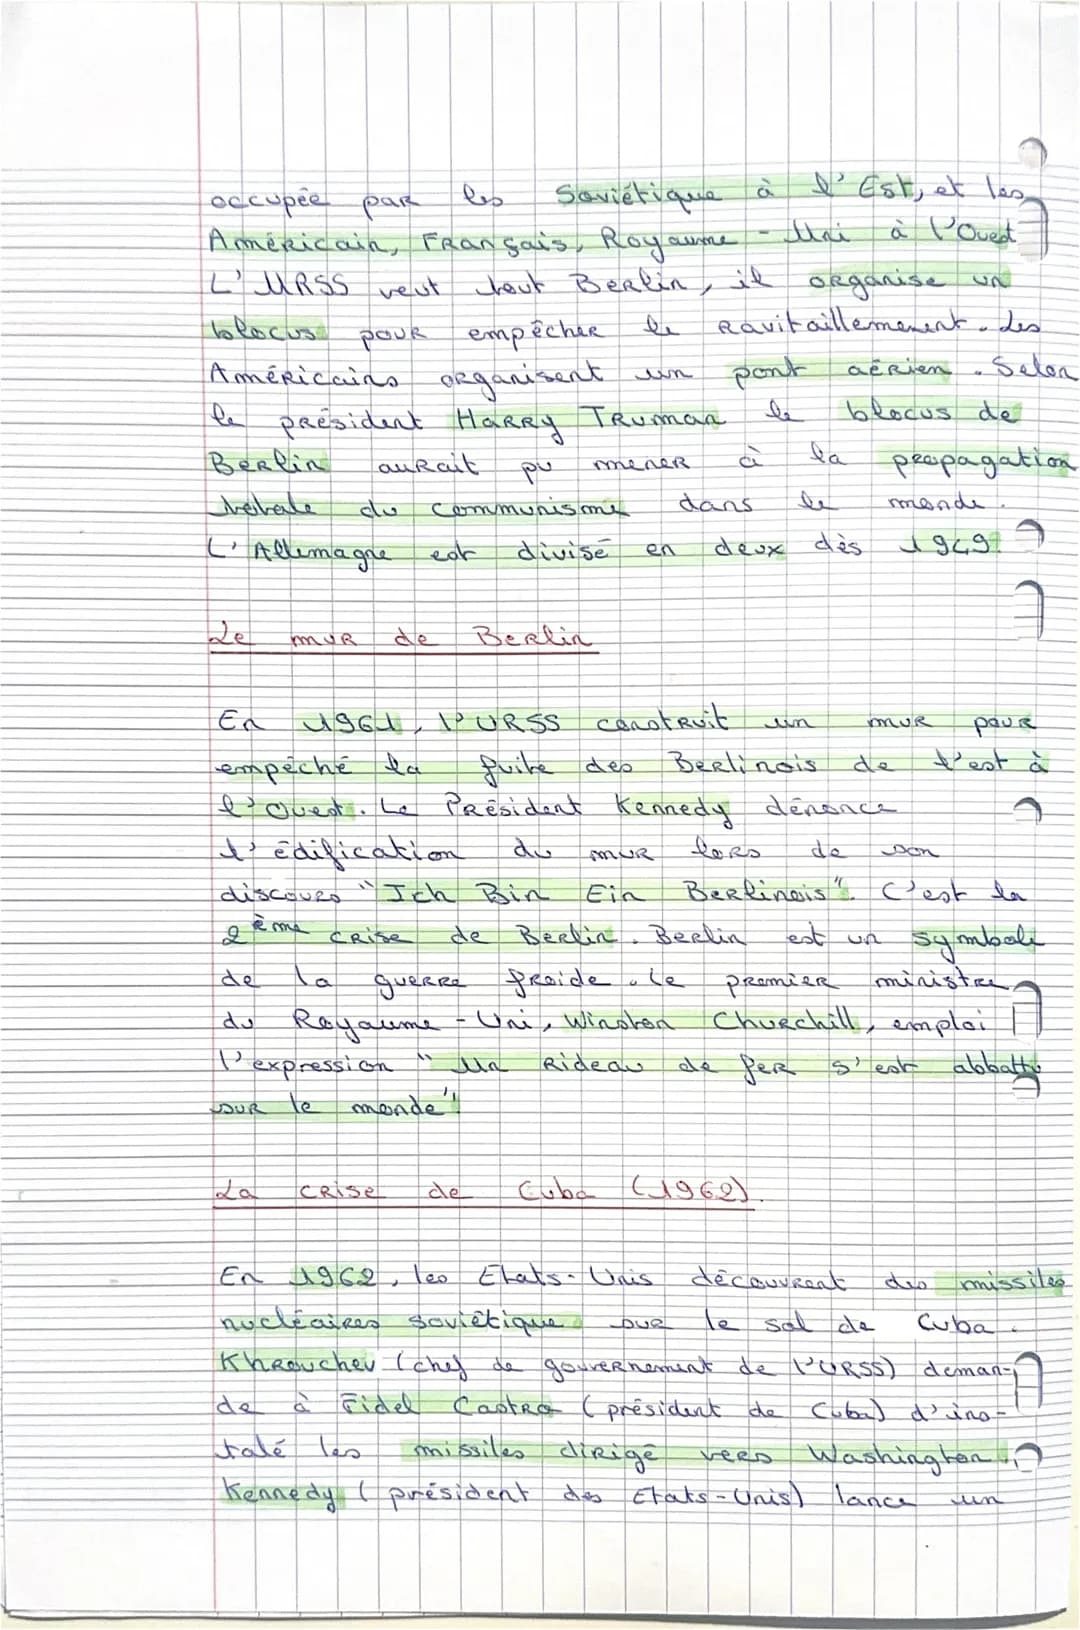 occupée par les Soviétique à l'Est, et les
Américain, Français, Royaume-Uni à l'Ouest
L'URSS veut tout Berlin, il organise un
blocus pour empêcher le ravitaillemement. Les
Américains organisent un pont aérien. Selon
le président Harry Truman le blocus de
Berlin aurait pu mener à la propagation
totale du communisme dans le monde.
L'Allemagne est divisé en deux dès 1949.
Le mur de Berlin
En 1961, l'URSS construit un mur pour
empêché la fuite des Berlinois de l'est à
l'Ouest. Le Président Kennedy dénonce
l'édification du mur lors de son
discours "Ich Bin Ein Berlinois". C'est la
2ème crise de Berlin. Berlin est un symbole
de la guerre froide. Le premier ministre
du Royaume-Uni, Winston Churchill, emploi
l'expression "Un rideau de fer s'est abbattu
sur le monde".
La crise de Cuba (1962).
En 1962, les Etats-Unis découvrent des missiles
nucléaires soviétique sur le sol de Cuba.
Khrouchev (chef de gouvernement de l'URSS) deman-
de à Fidel Castro (président de Cuba) d'ins-
talé les missiles dirigé vers Washington.
Kennedy (président des Etats-Unis) lance un